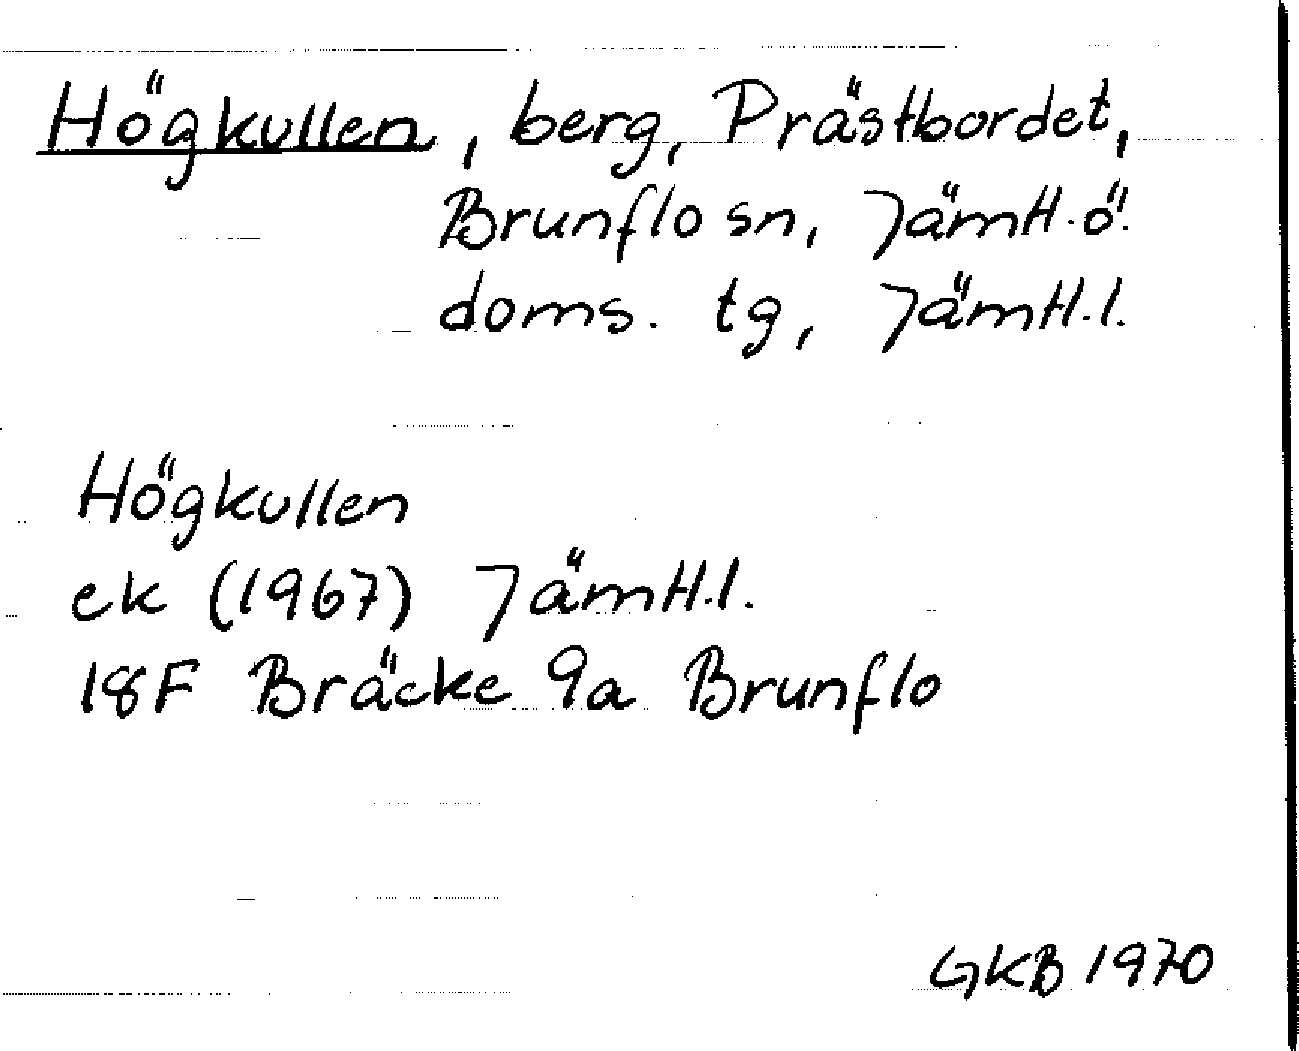 Högkullen, berg, Prästbordet,
Brunflo sn, Jämtl. ö.
doms. tg, Jämtl. l.
Högkullen
ek (1967) Jämtl. l.
18F Bräcke 9a Brunflo
GKB 1970